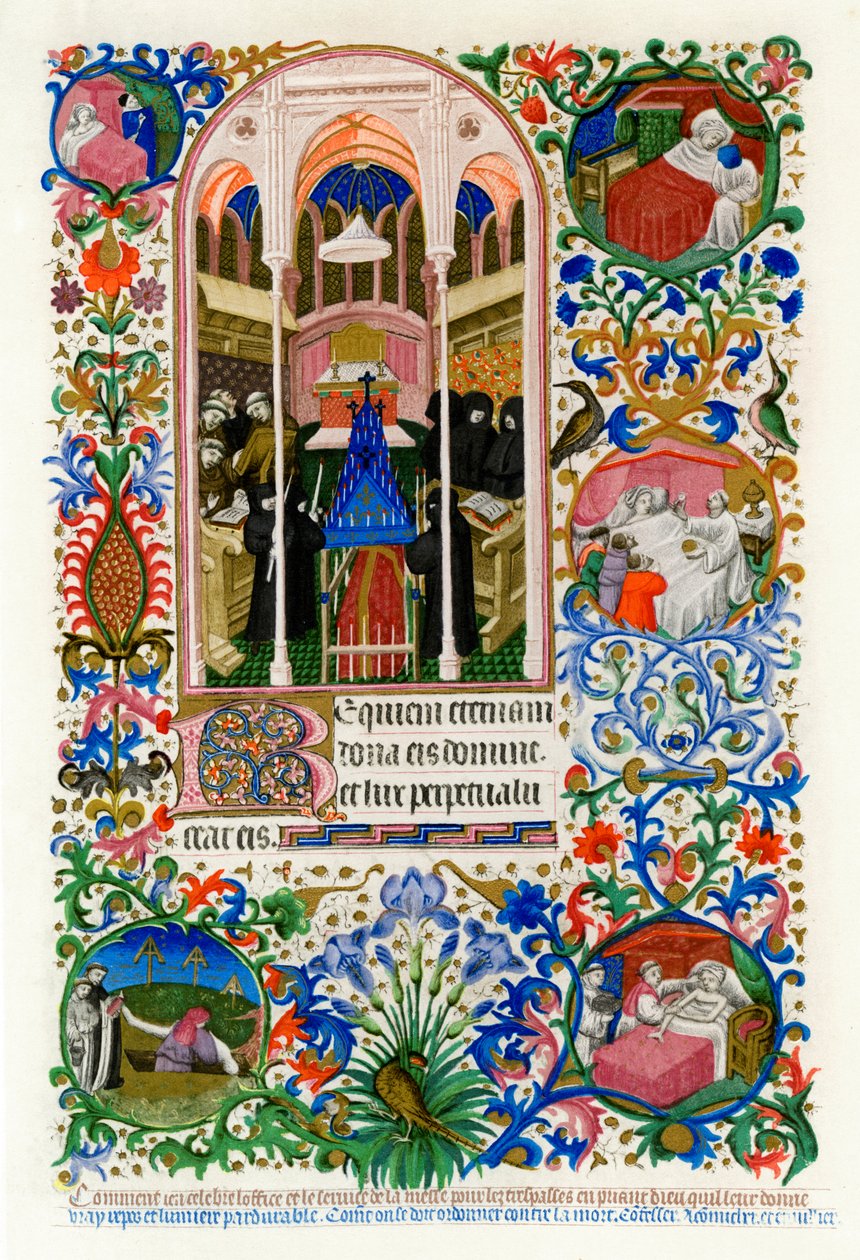 Requiem eternam
dona eis domine.
et lux perpetua lu
ceat eis.
Comment len celebre loffice et le service de la messe pour les trespasses en priant dieu quil leur donne
vray repos et lumiere pardurable. Comment on se doit ordonner contre la mort. Confesser. Acomuchier. et enhuilier.